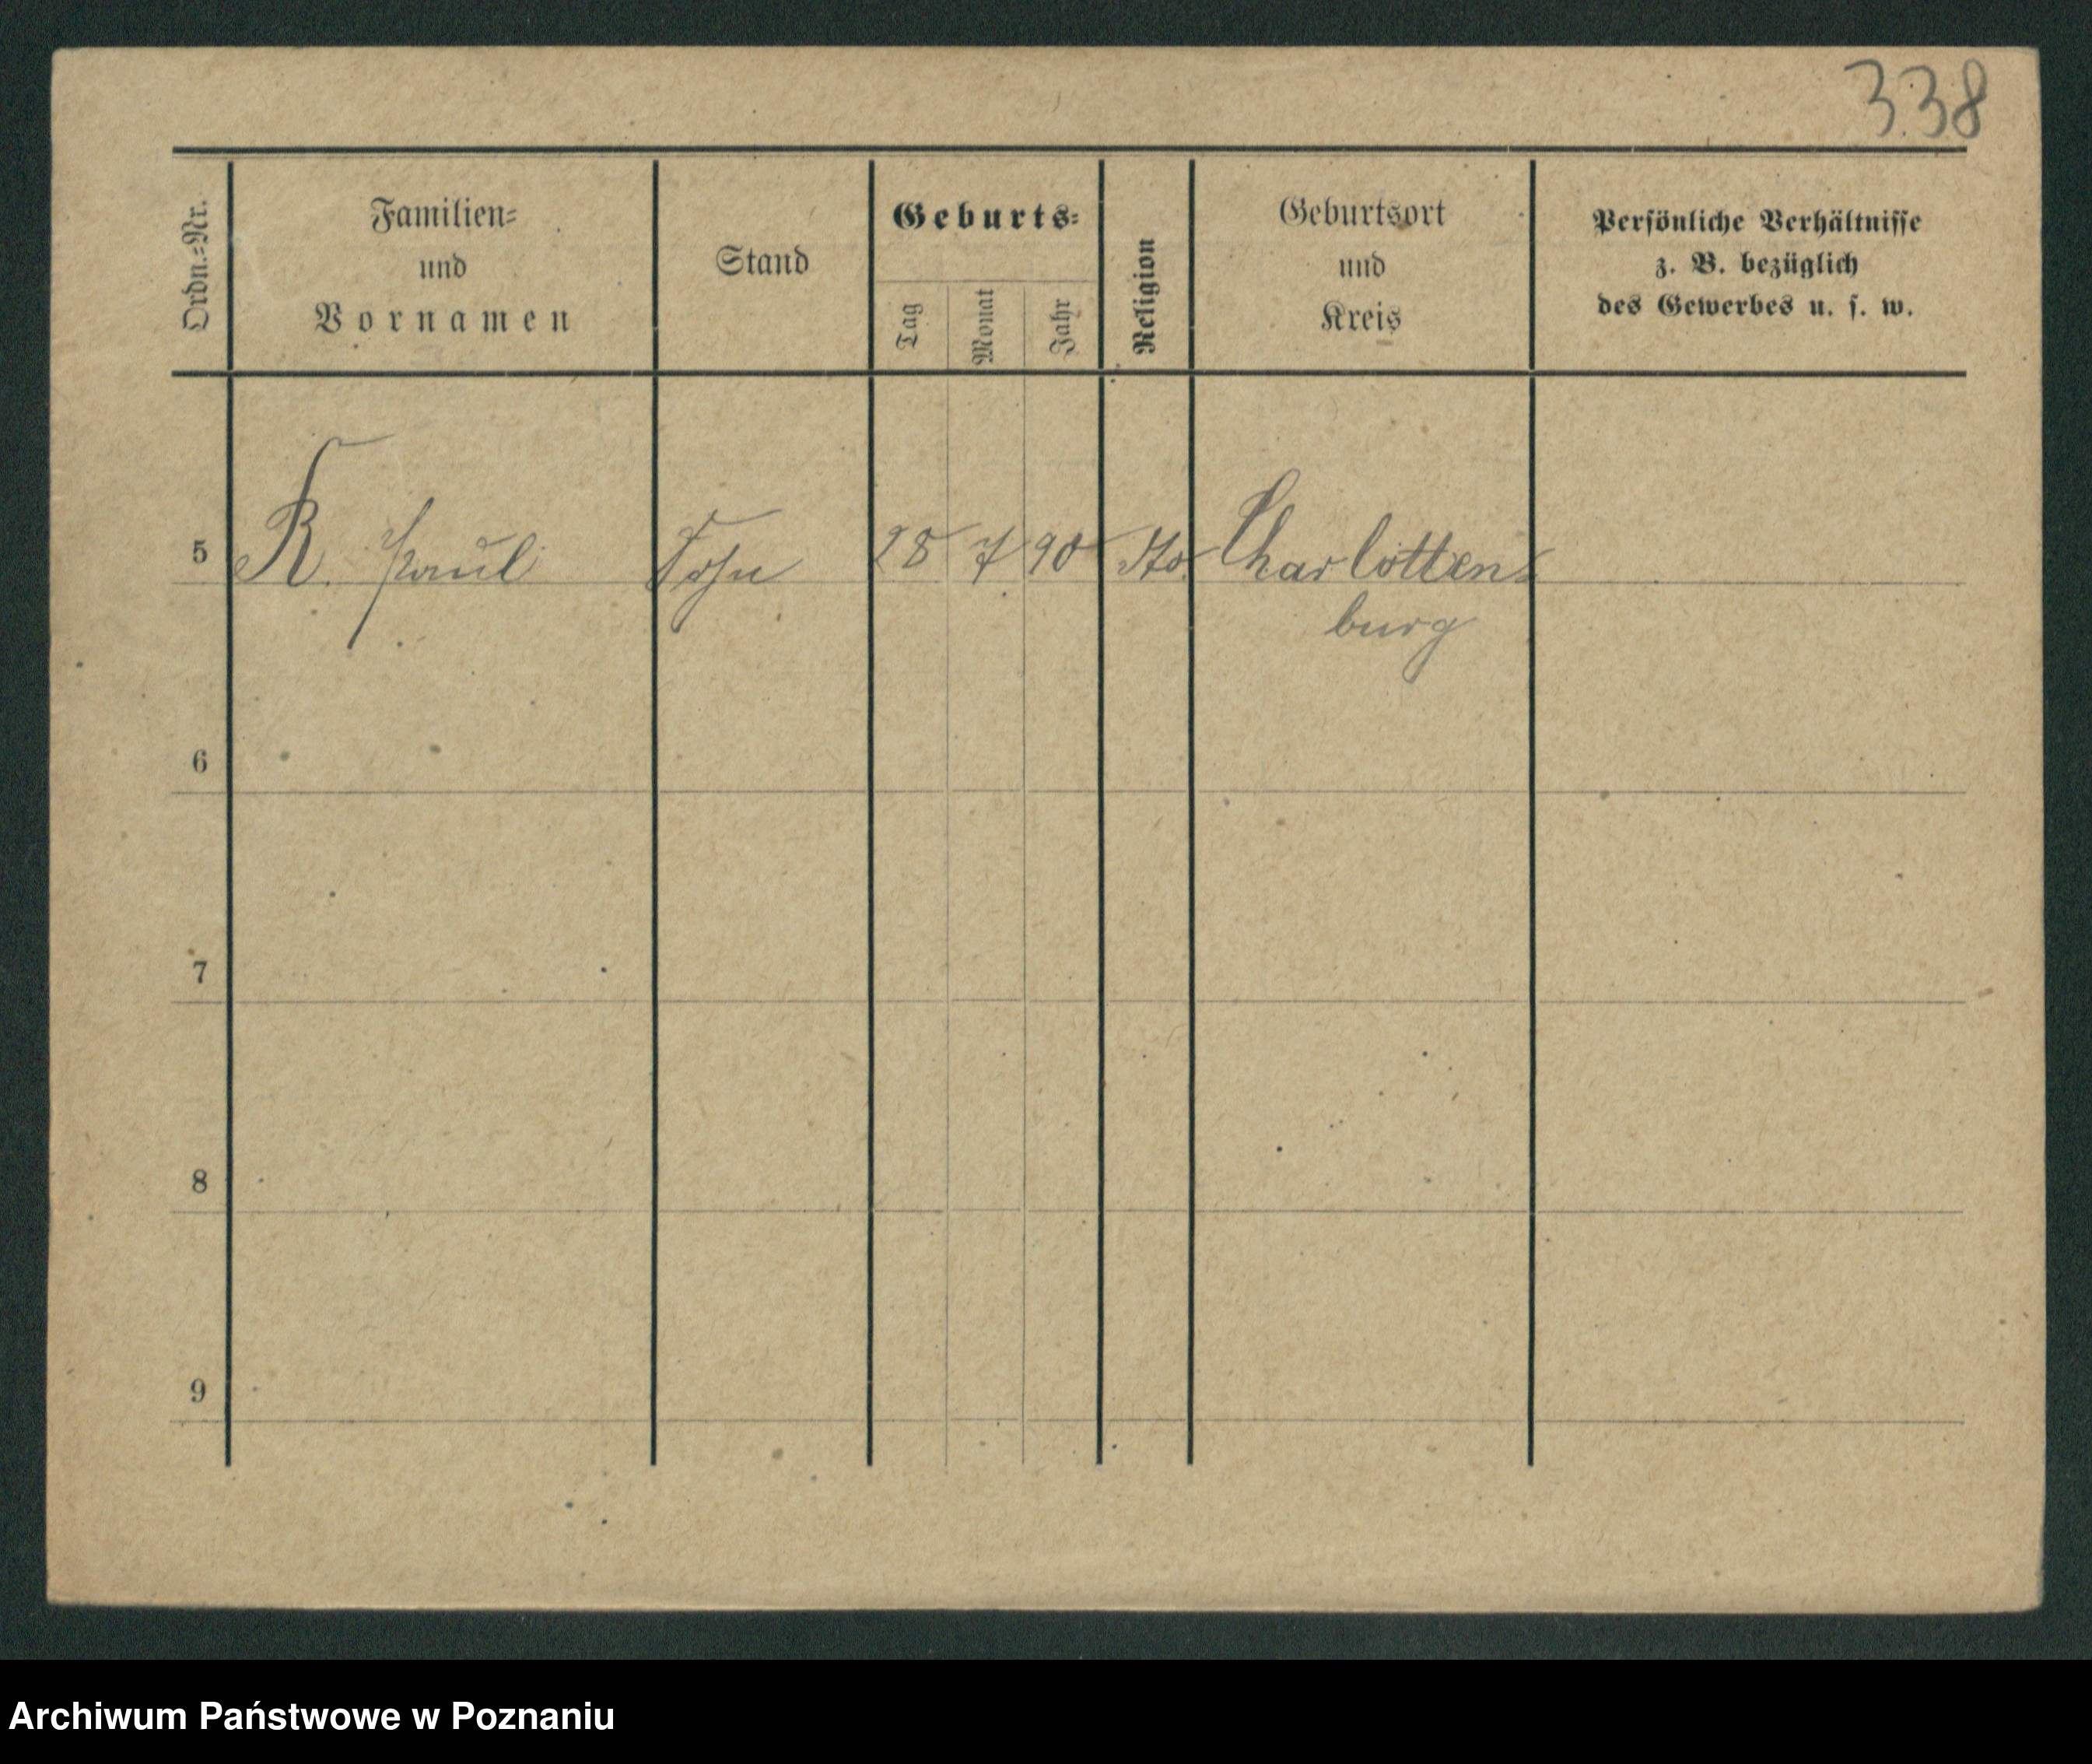 338
Ordn.-Nr.
Familien-
und
Vornamen
Stand
Geburts-
Tag
Monat
Jahr
Religion
Geburtsort
und
Kreis
Persönliche Verhältnisse
z. B. bezüglich
des Gewerbes u. s. w.
5 R. Paul Sohn 28 7 90 Charlotten-
burg
6
7
8
9
Archiwum Państwowe w Poznaniu